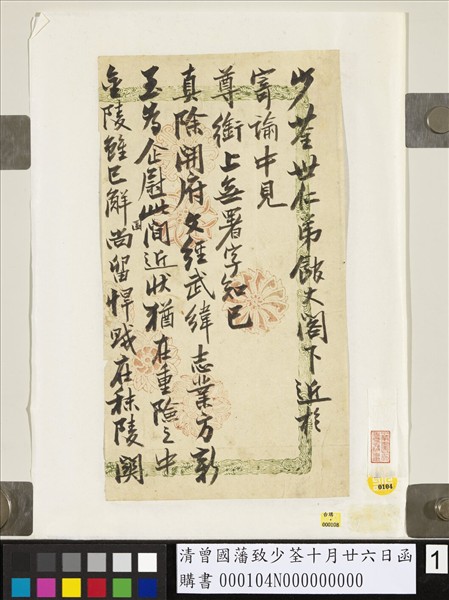 少荃世仁弟館大閣下近於
寄諭中見
尊銜上無署字知已
真除開府文經武緯志業方新
至為企慰此間近狀猶在重險之中
金陵雖已解尚留悍賊在秣陵關
面
0104
台購
000108
清曾國藩致少荃十月廿六日函
購書 000104N000000000
1